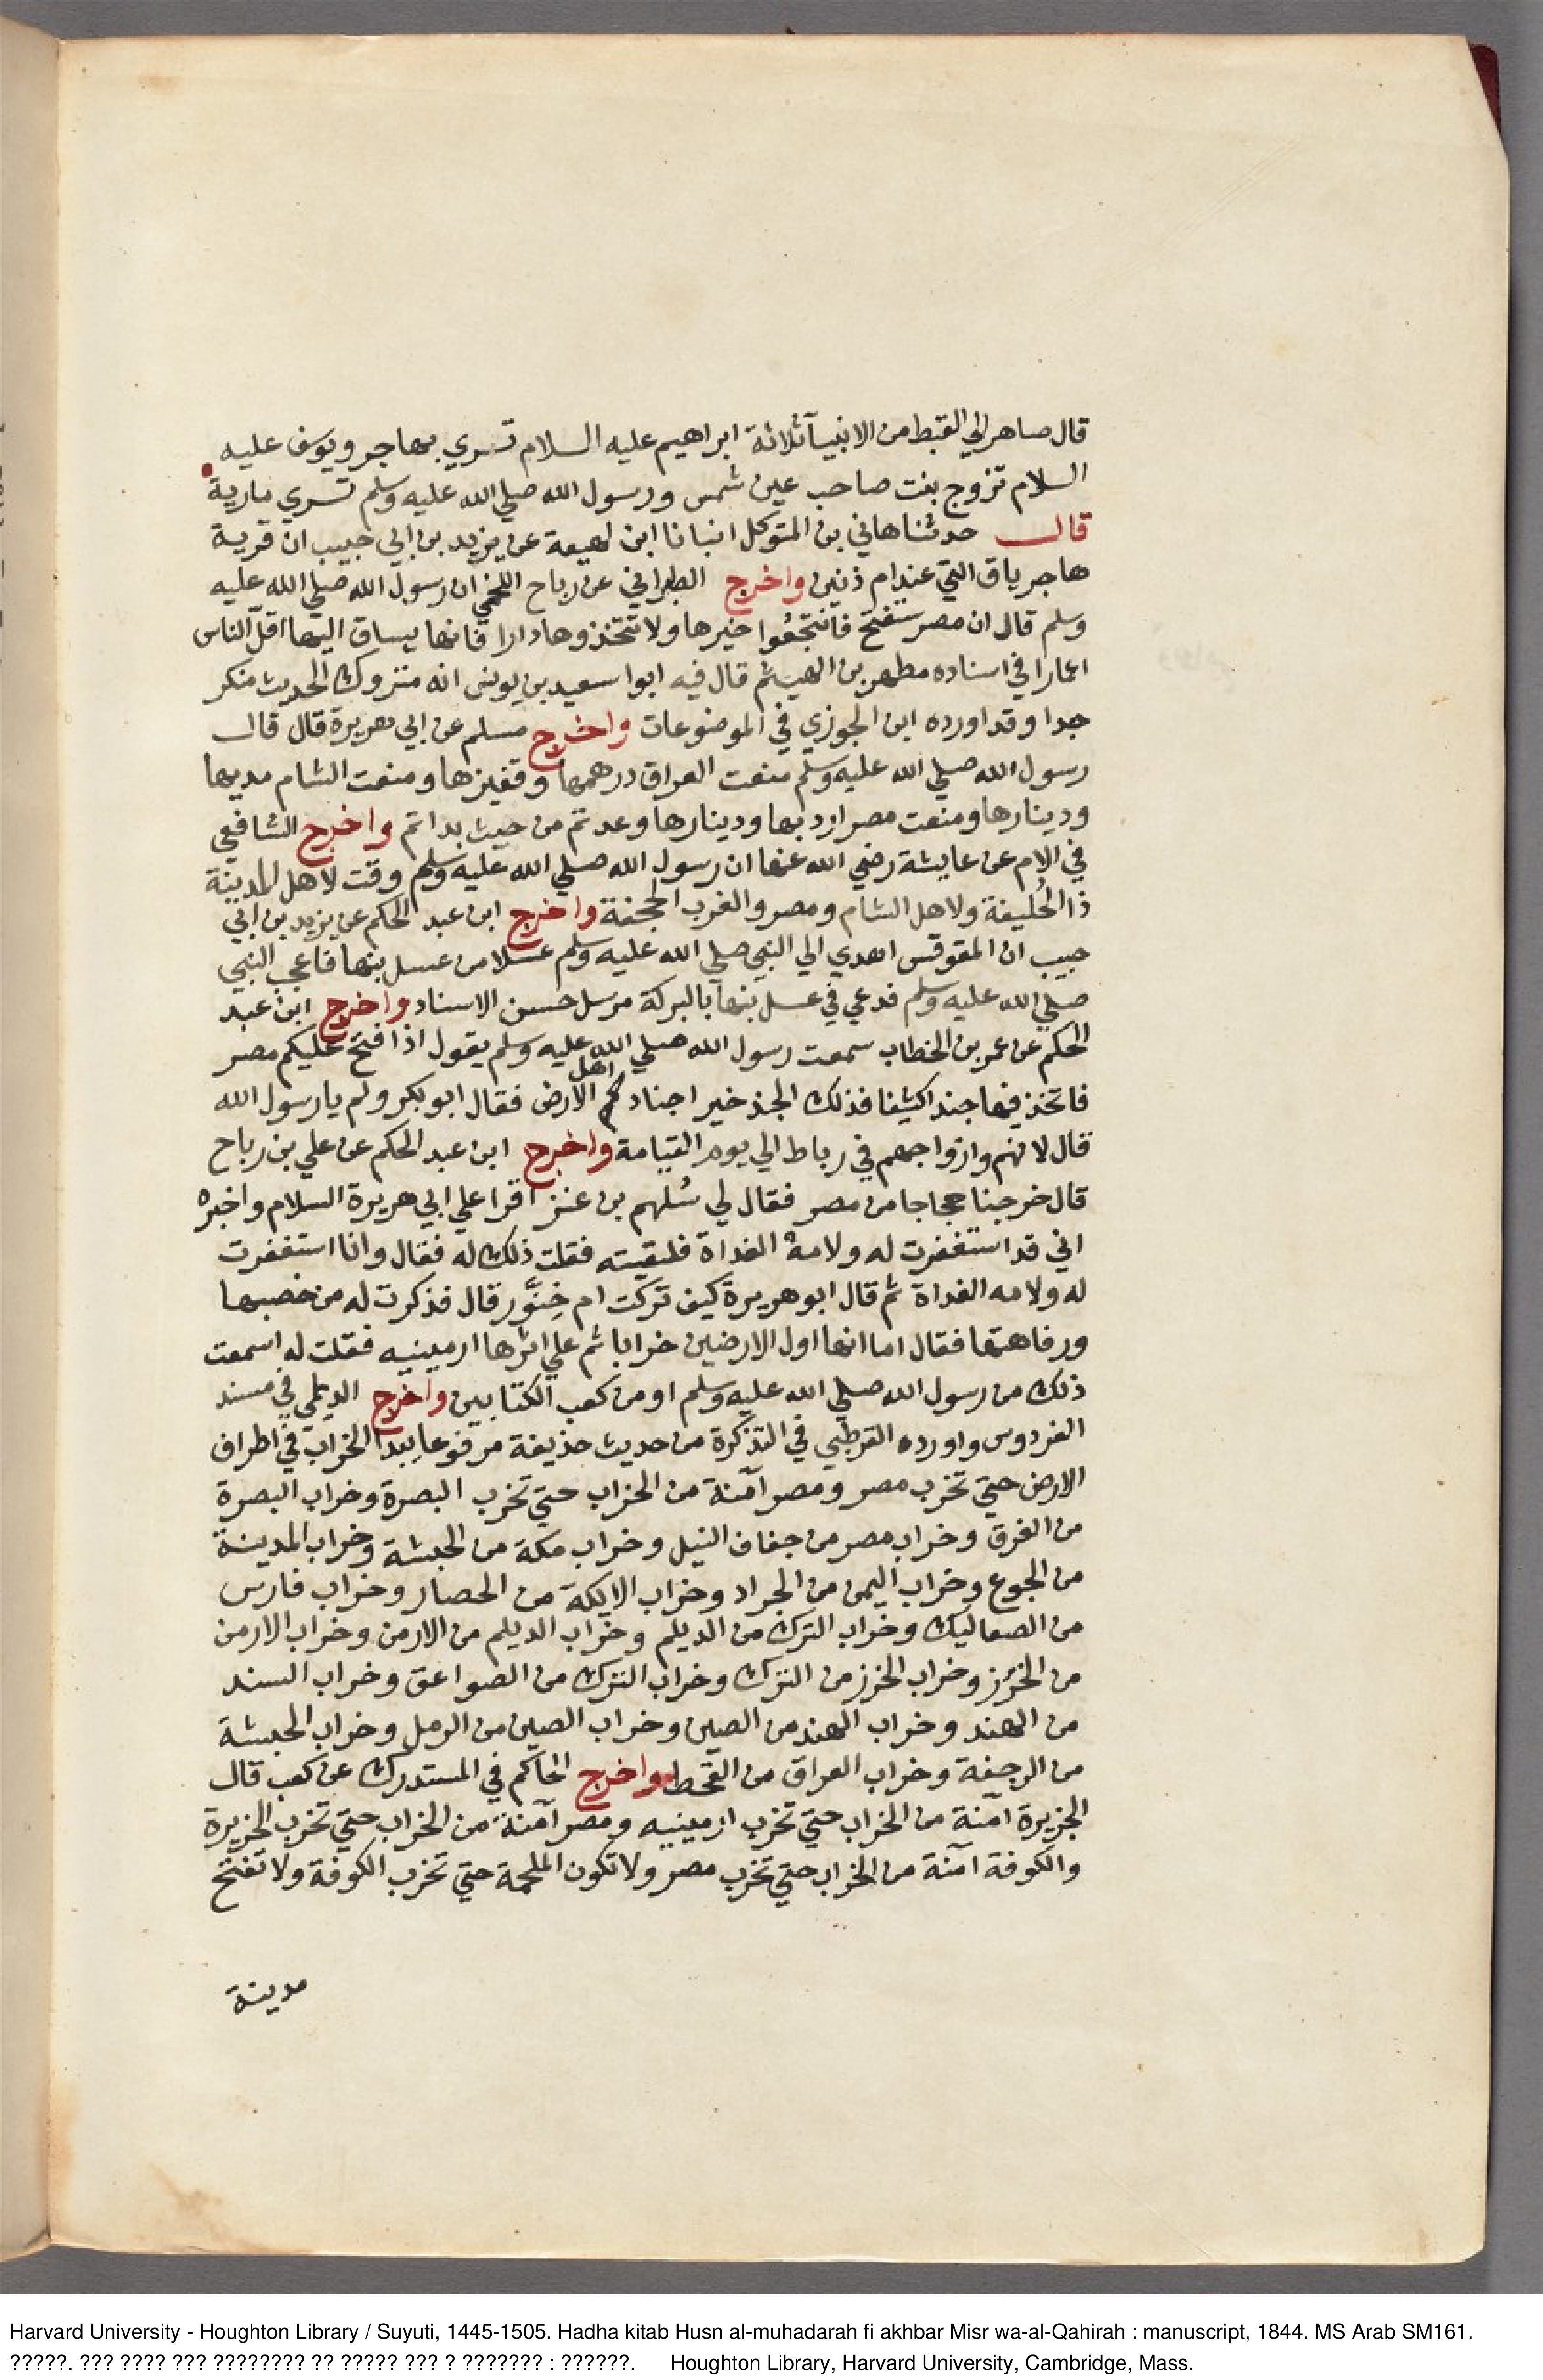 قال صاهر الي القبط من الانبيآ ثلاثة ابراهيم عليه السلام تسري بهاجر ويوسف عليه
السلام تزوج بنت صاحب عين شمس ورسول الله صلي الله عليه وسلم تسري مارية
قال حدثنا هاني بن المتوكل انبانا ابن لهيعة عن يزيد بن ابي حبيب ان قرية
هاجر ياق التي عند ام دنين واخرج الطبراني عن رباح اللخمي ان رسول الله صلي الله عليه
وسلم قال ان مصر ستفتح فانتجعوا خيرها ولا تتخذوها دارا فانها يساق اليها اقل الناس
اعمارا في اسناده مطهر بن الهيثم قال فيه ابوا سعيد بن يونس انه متروك الحديث منكر
جدا وقد اورده ابن الجوزي في الموضوعات واخرج مسلم عن ابي هريرة قال قال
رسول الله صلي الله عليه وسلم منعت العراق درهمها وقفيزها ومنعت الشام مديها
ودينارها ومنعت مصر اردبها ودينارها وعدتم من حيث بداتم واخرج الشافعي
في الام عن عايشة رضي الله عنها ان رسول الله صلي الله عليه وسلم وقت لاهل المدينة
ذا الحُليفة ولاهل الشام ومصر والغرب الجحفة واخرج ابن عبد الحكم عن يزيد بن ابي
حبيب ان المقوقس اهدي الي النبي صلي الله عليه وسلم عسلا من عسل بنها فاعجب النبي
صلي الله عليه وسلم فدعي في عسل بنها بالبركة مرسل حسن الاسناد واخرج ابن عبد
الحكم عن عمر بن الخطاب سمعت رسول الله صلي الله عليه وسلم يقول اذا فتح عليكم مصر
فاتخذ فيها جندا كثيفا فذلك الجند خير اجناد اهل الارض فقال ابو بكر ولم يا رسول الله
قال لانهم وازواجهم في رباط الي يوم القيامة واخرج ابن عبد الحكم عن علي بن رباح
قال خرجنا حجاجا من مصر فقال لي سُلهم بن عنز اقرا علي ابي هريرة السلام واخبره
اني قد استغفرت له ولامه الغداة فلقيته فقلت ذلك له فقال وانا استغفرت
له ولامه الغداة ثم قال ابو هريرة كيف تركت ام خِنَّور قال فذكرت له من خصبها
ورفاهتها فقال اما انها اول الارضين خرابا ثم علي اثرها ارمينيه فقلت له اسمعت
ذلك من رسول الله صلي الله عليه وسلم او من كعب الكتابين واخرج الديلمي في مسند
الفردوس واورده القرطبي في التذكرة من حديث حذيفة مرفوعا يبدا الخراب في اطراف
الارض حتي تخرب مصر ومصر آمنة من الخراب حتي تخرب البصرة وخراب البصرة
من الغرق وخراب مصر من جفاف النيل وخراب مكة من الحبشة وخراب المدينة
من الجوع وخراب اليمن من الجراد وخراب الايلكة من الحصار وخراب فارس
من الصعاليك وخراب الترك من الديلم وخراب الديلم من الارمن وخراب الارمن
من الخزز وخراب الخزز من الترك وخراب الترك من الصواعق وخراب السند
من الهند وخراب الهند من الصين وخراب الصين من الرمل وخراب الحبشة
من الرجفة وخراب العراق من القحط واخرج الحاكم في المستدرك عن كعب قال
الجزيرة آمنة من الخراب حتي تخرب ارمينيه ومصر آمنة من الخراب حتي تخرب الجزيرة
والكوفة آمنة من الخراب حتي تخرب مصر ولا تكون الملحمة حتي تخرب الكوفة ولا تفتح
مدينة
Harvard University - Houghton Library / Suyuti, 1445-1505. Hadha kitab Husn al-muhadarah fi akhbar Misr wa-al-Qahirah : manuscript, 1844. MS Arab SM161.
?????. ??? ???? ??? ???????? ?? ????? ??? ? ??????? : ??????. Houghton Library, Harvard University, Cambridge, Mass.